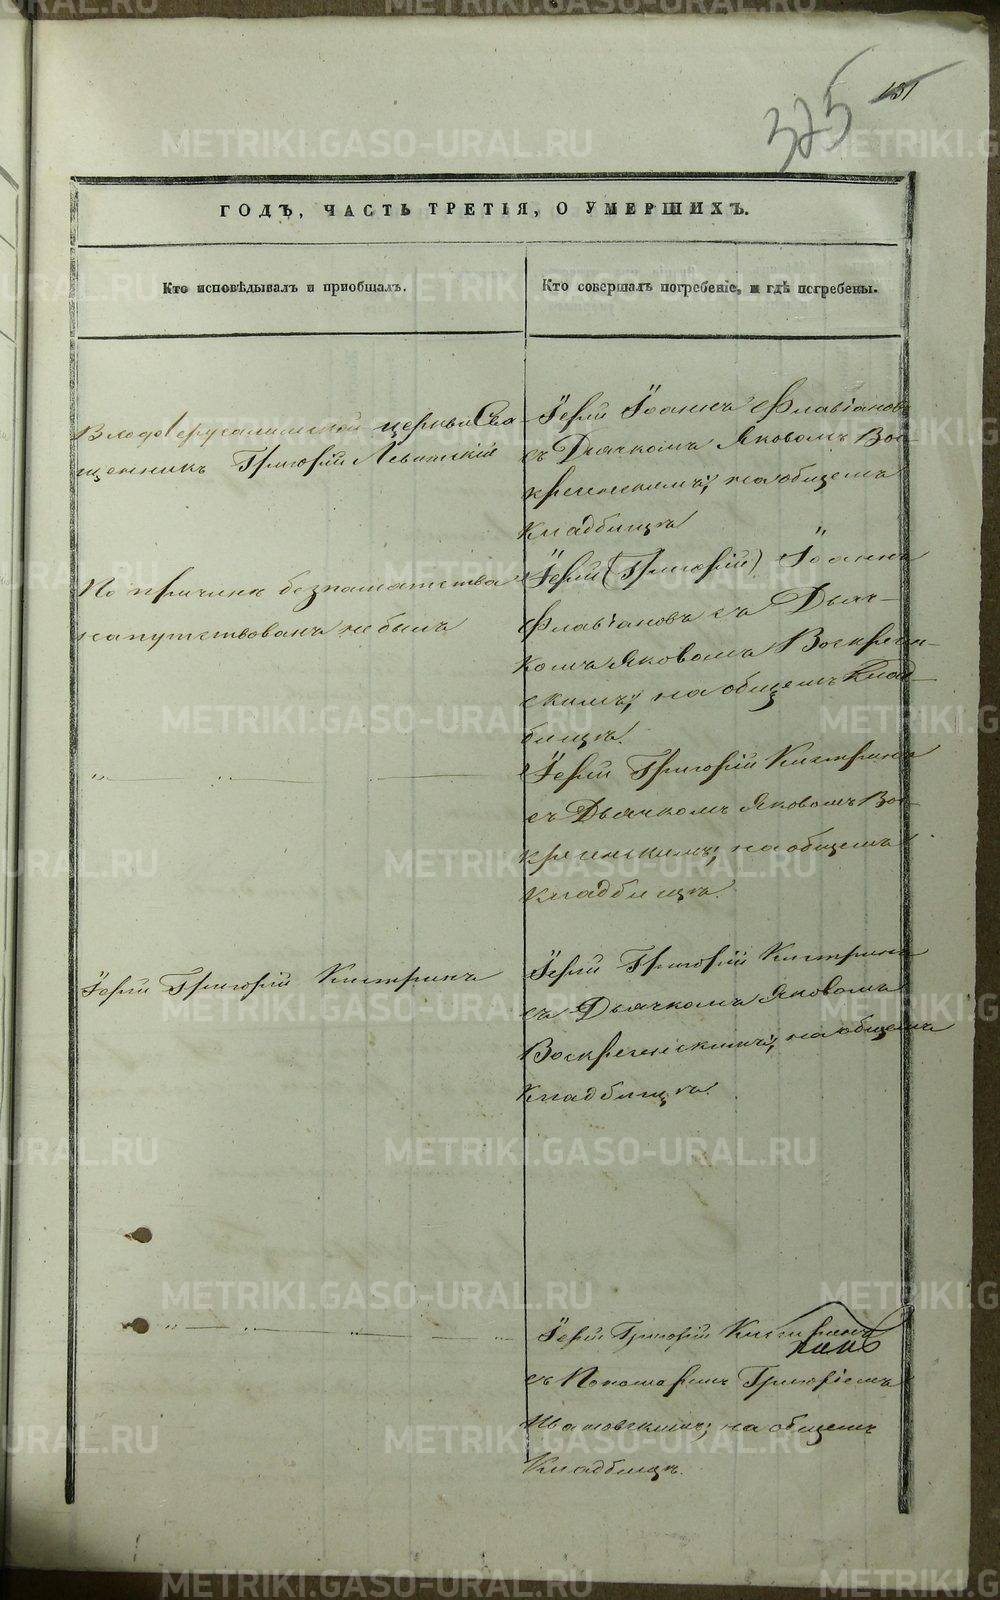 131
325
ГОДЪ, ЧАСТЬ ТРЕТІЯ, О УМЕРШИХЪ.
Кто исповѣдывалъ и приобщалъ.
Кто совершалъ погребеніе, и гдѣ погребены.
Входоіерусалимской церкви Свя-
щенникъ Григорій Левитскій
Іерей Іоаннъ Флавіановъ
съ Дьячкомъ Яковомъ Вос-
кресенскимъ; на общемъ
Кладбищѣ
По причинѣ безпамятства
напутствованъ не былъ
Іерей (Григорій) Іоаннъ
Флавіановъ съ Дьяч-
комъ Яковомъ Воскресен-
скимъ; на общемъ Клад-
бищѣ.
Іерей Григорій Кистринъ
съ Дьячкомъ Яковомъ Вос-
кресенскимъ; на общемъ
Кладбищѣ.
Іерей Григорій Кистринъ
Іерей Григорій Кистринъ
съ Дьячкомъ Яковомъ
Воскресенскимъ; на общемъ
Кладбищѣ.
Іерей Григорій Кистринъ
съ Пономаремъ Григоріемъ
Ивановскимъ; на общемъ
Кладбищѣ.
METRIKI.GASO-URAL.RU